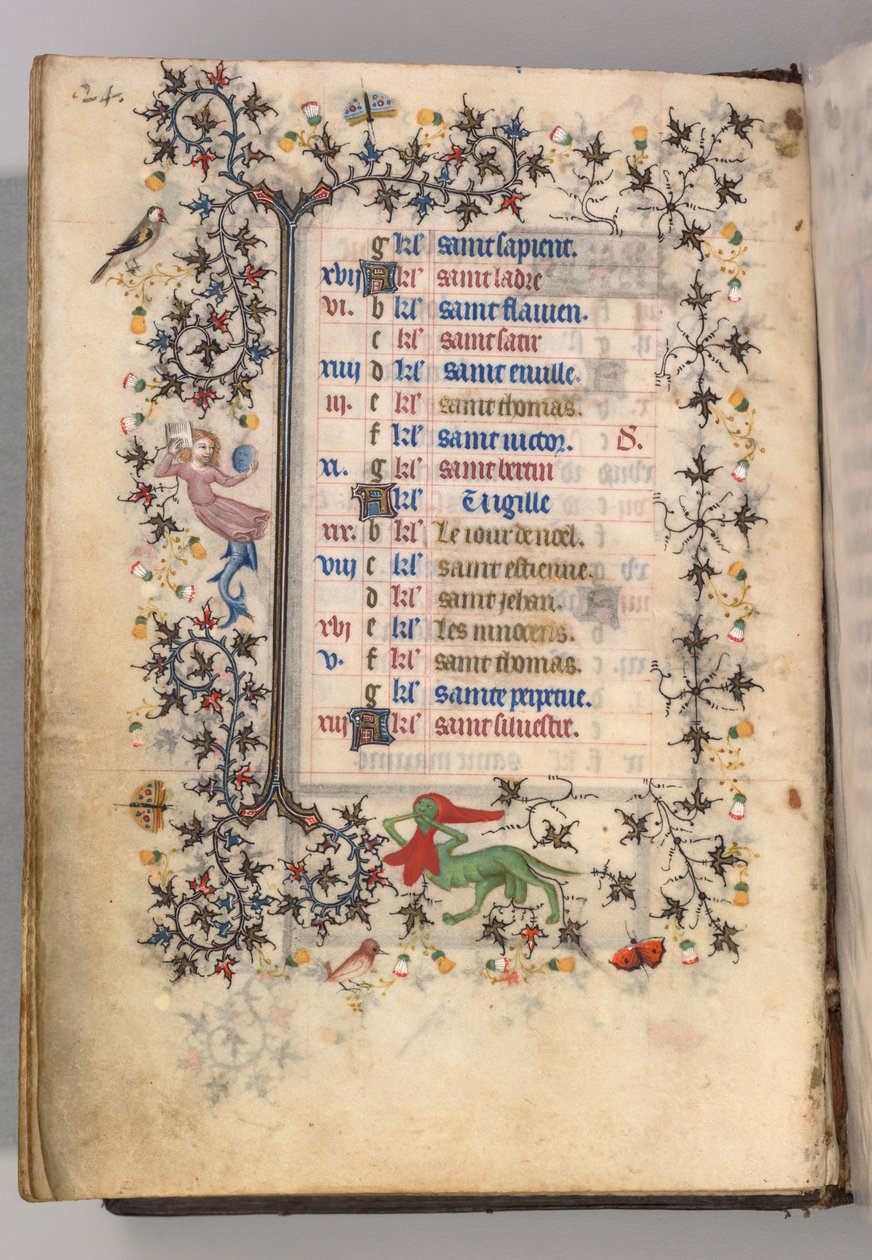 24.
g kl' saint sapient.
xvij A kl' saint ladre
vi. b kl' saint flauien.
c kl' saint satir
xiiij d kl' saint euille.
iii. e kl' saint thomas.
f kl' saint uictor. S.
xi. g kl' saint bertin
A kl' Uigille
xix. b kl' Le iour de noel.
viij c kl' saint estienne.
d kl' saint jehan.
xvj e kl' Les innocens.
v. f kl' saint thomas.
g kl' sainte perpetue.
xiij A kl' saint siluestir.